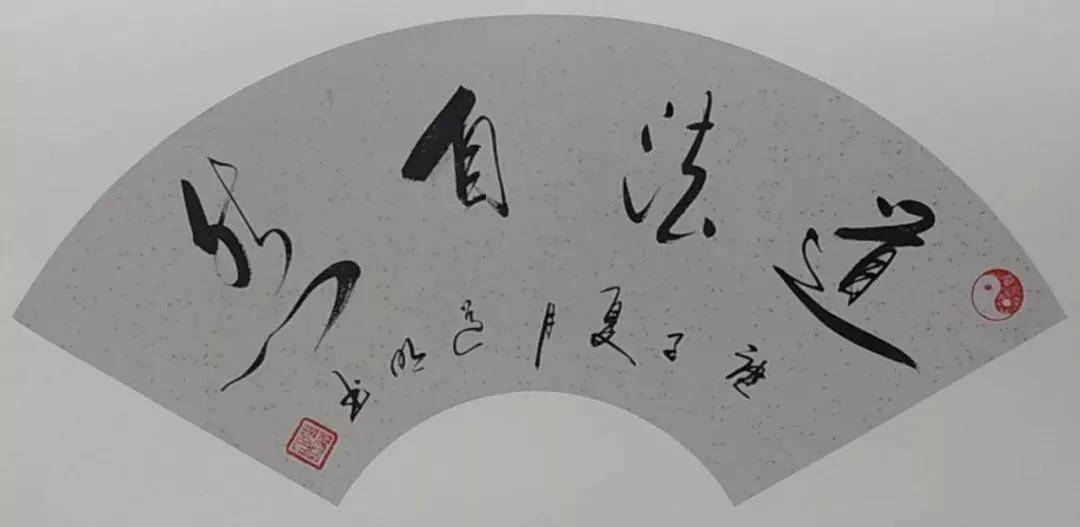 道法自然
庚子夏月道明书